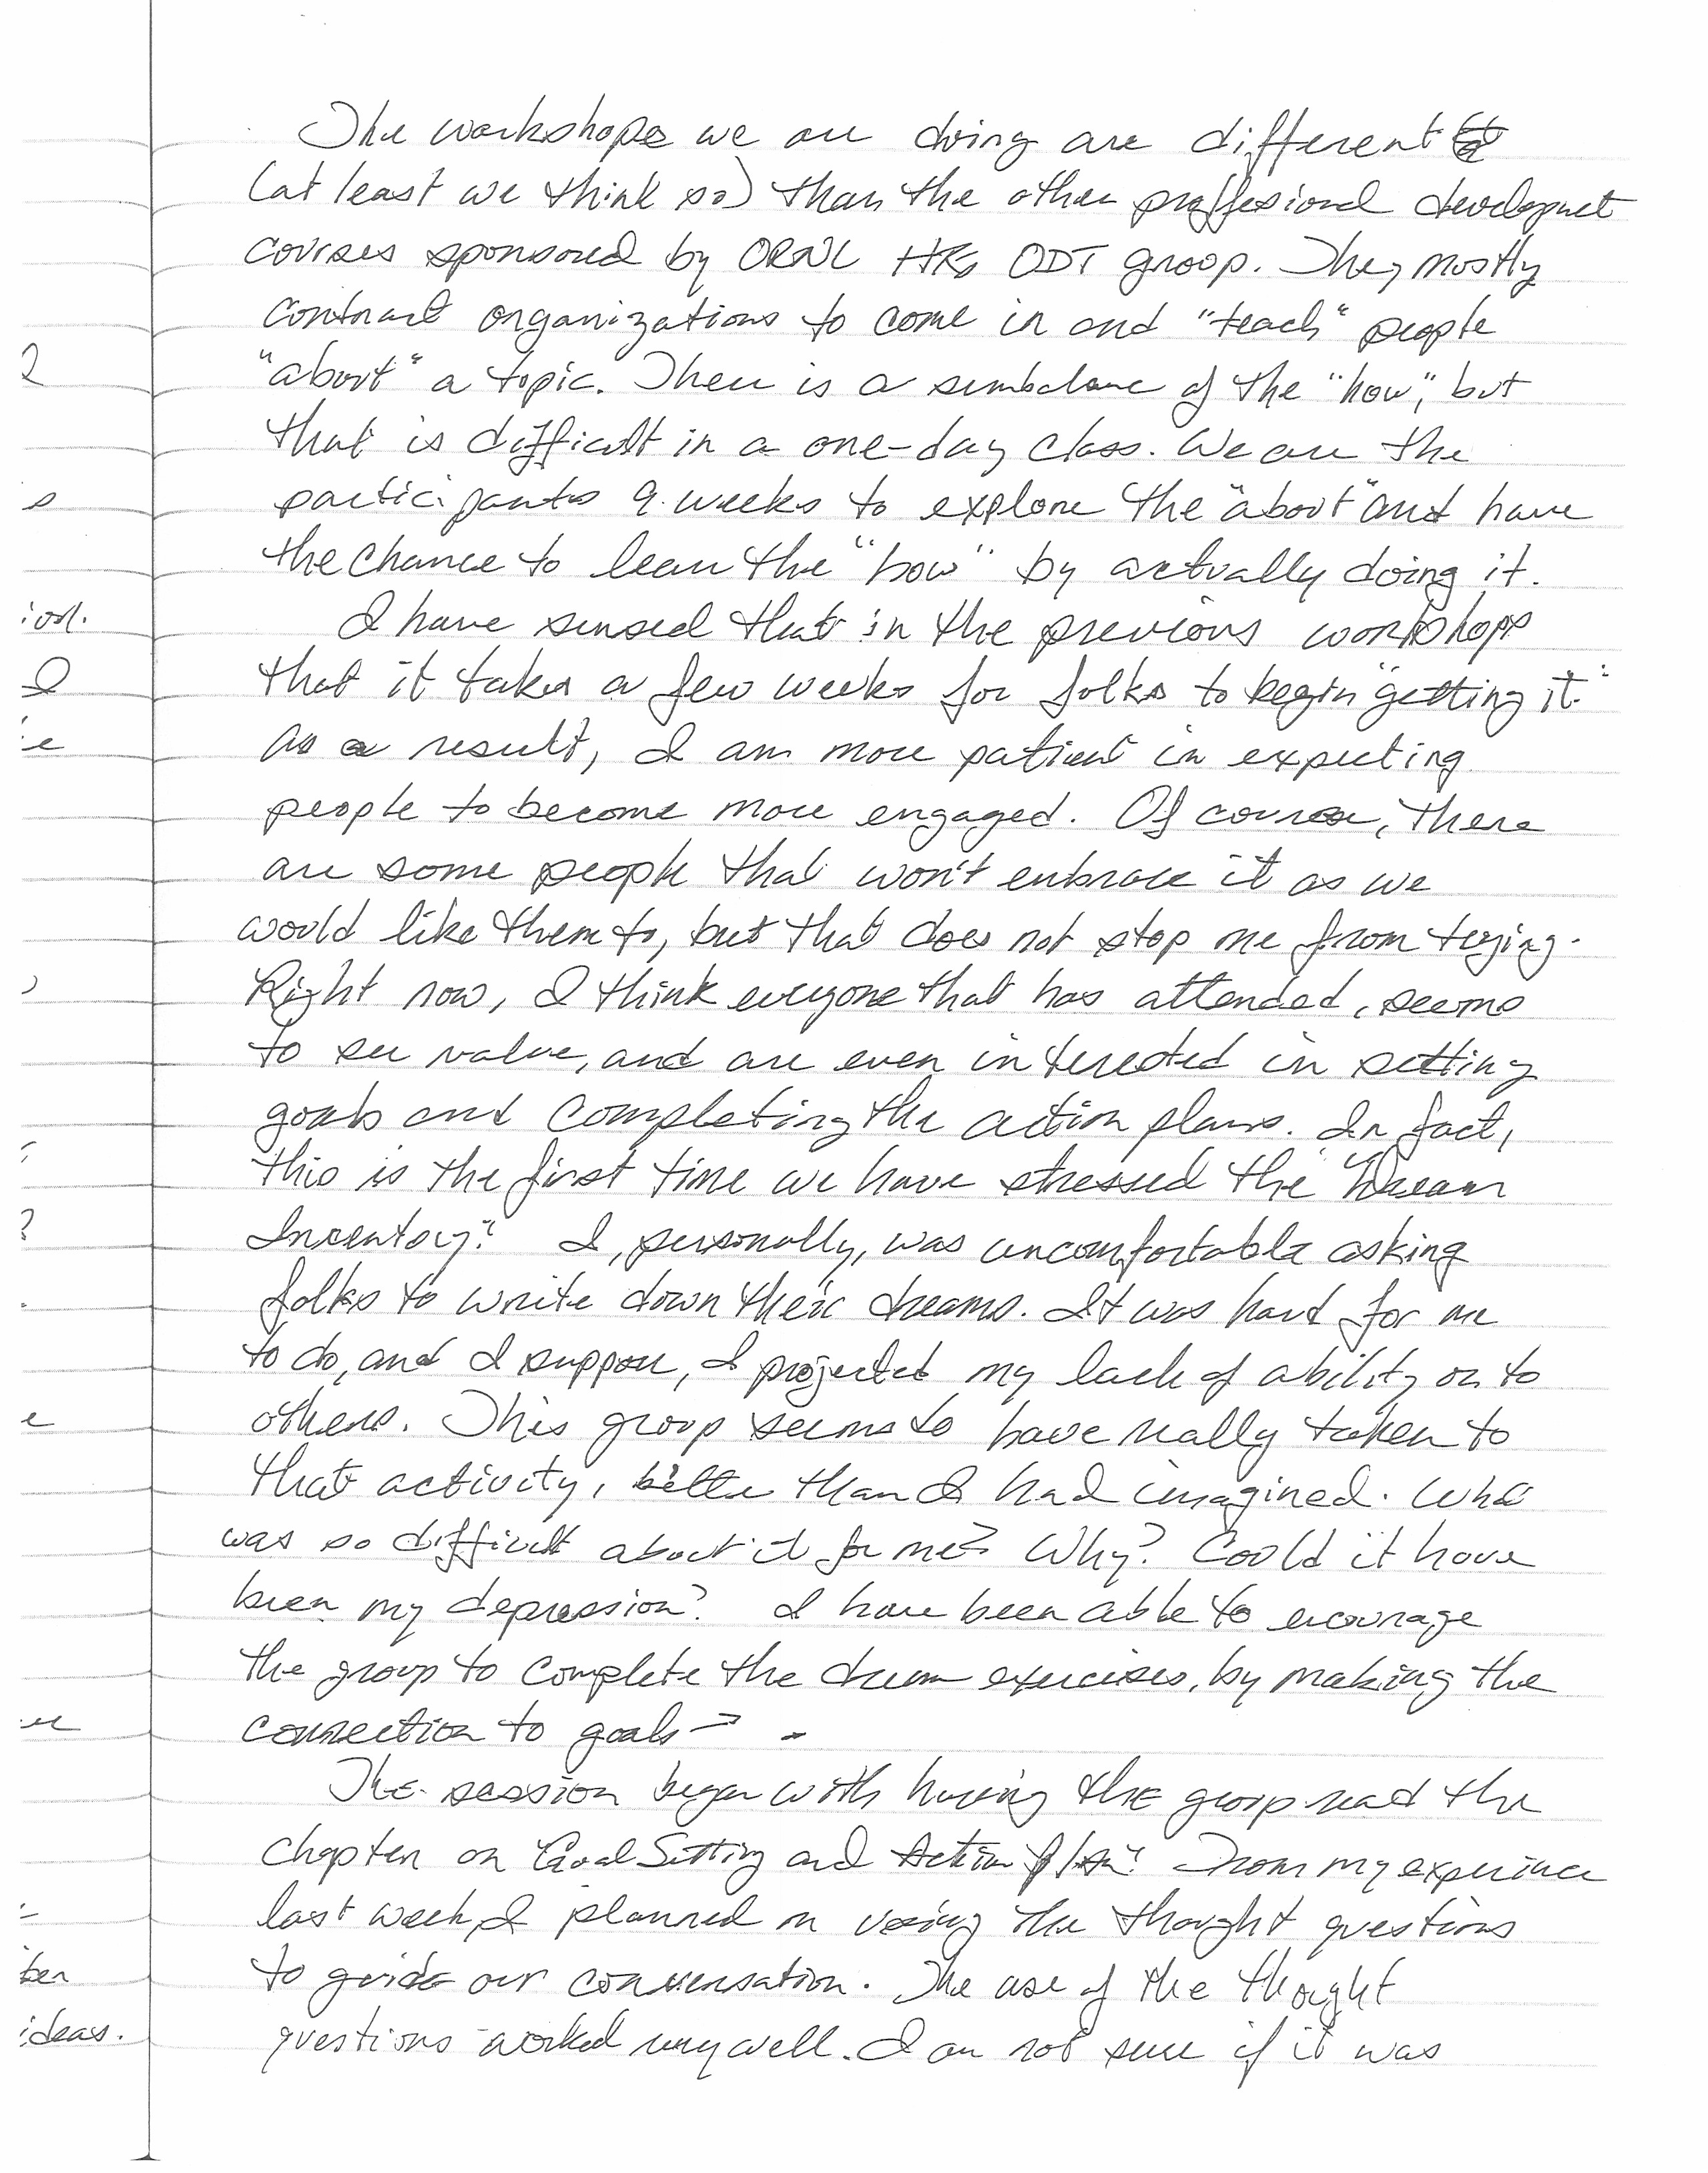 The workshops we are doing are different
(at least we think so) than the other proffesional development
courses sponsored by ORNL HRs ODT group. They mostly
contract organizations to come in and "teach" people
"about" a topic. There is a semblance of the "how", but
that is difficult in a one-day class. We are the
participants 9 weeks to explore the "about" and have
the chance to learn the "how" by actually doing it.
I have sensed that in the previous workshops
that it takes a few weeks for folks to begin "getting it."
As a result, I am more patient in expecting
people to become more engaged. Of course, there
are some people that won't embrace it as we
would like them to, but that does not stop me from trying.
Right now, I think everyone that has attended, seems
to see value, and are even interested in setting
goals and completing the action plans. In fact,
this is the first time we have stressed the "Dream
Inventory." I, personally, was uncomfortable asking
folks to write down their dreams. It was hard for me
to do, and I suppose, I projected my lack of ability on to
others. This group seems to have really taken to
that activity, better than I had imagined. What
was so difficult about it for me? Why? Could it have
been my depression? I have been able to encourage
the group to complete the dream exercises, by making the
connection to goals
The session began with having the group read the
chapter on "Goal Setting and Action Plan" From my experience
last week, I planned on using the thought questions
to guide our conversation. The use of the thought
questions worked very well. I am not sure if it was
2
s
ion.
I
e
?
e
ter
ideas.